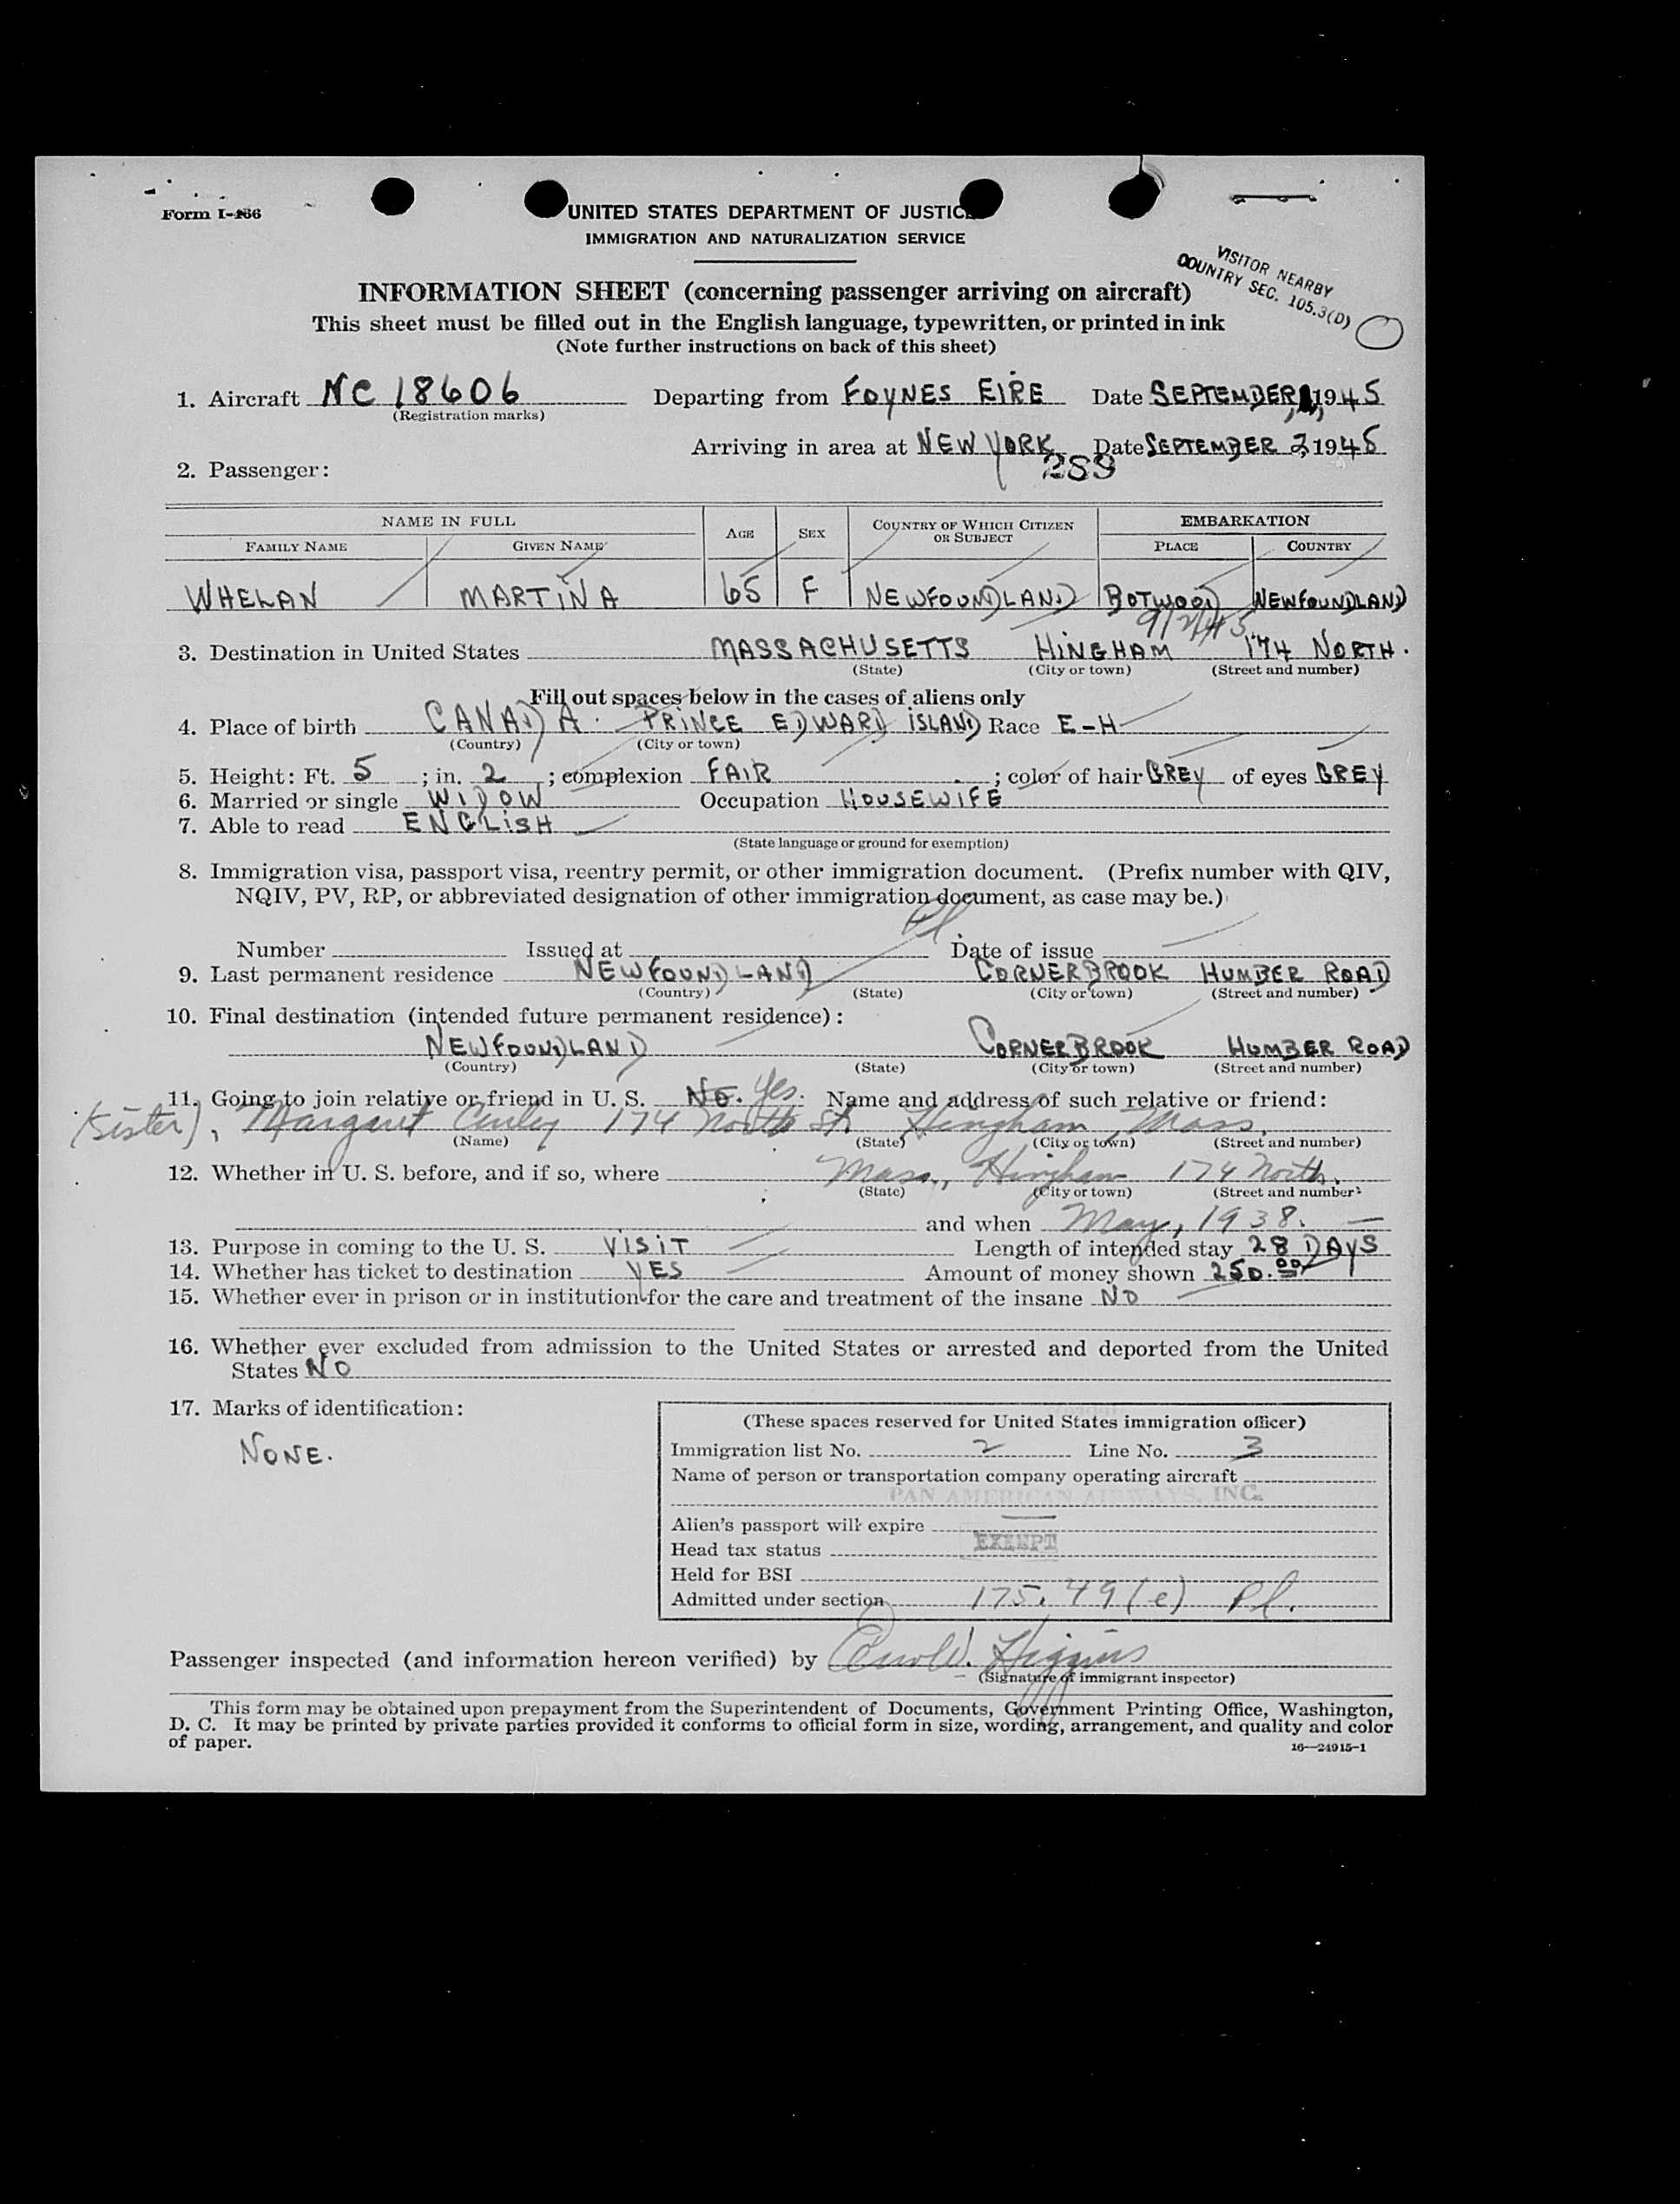 Form I-466
UNITED STATES DEPARTMENT OF JUSTICE
IMMIGRATION AND NATURALIZATION SERVICE
VISITOR NEARBY
COUNTRY SEC. 105.3(D)
INFORMATION SHEET (concerning passenger arriving on aircraft)
This sheet must be filled out in the English language, typewritten, or printed in ink
(Note further instructions on back of this sheet)
1. Aircraft NC 18606 Departing from FOYNES EIRE Date SEPTEMBER, 1, 1945
(Registration marks)
Arriving in area at NEW YORK Date SEPTEMBER 2, 1945
289
2. Passenger:
NAME IN FULL AGE SEX COUNTRY OF WHICH CITIZEN OR SUBJECT EMBARKATION
FAMILY NAME GIVEN NAME PLACE COUNTRY
WHELAN MARTINA 65 F NEWFOUNDLAND BOTWOOD NEWFOUNDLAND
9/2/45
3. Destination in United States MASSACHUSETTS HINGHAM 174 NORTH.
(State) (City or town) (Street and number)
Fill out spaces below in the cases of aliens only
4. Place of birth CANADA. PRINCE EDWARD ISLAND Race E-H
(Country) (City or town)
5. Height: Ft. 5 ; in. 2 ; complexion FAIR ; color of hair GREY of eyes GREY
6. Married or single WIDOW Occupation HOUSEWIFE
7. Able to read ENGLISH
(State language or ground for exemption)
8. Immigration visa, passport visa, reentry permit, or other immigration document. (Prefix number with QIV,
NQIV, PV, RP, or abbreviated designation of other immigration document, as case may be.)
Pl.
Number Issued at Date of issue
9. Last permanent residence NEWFOUNDLAND CORNERBROOK HUMBER ROAD
(Country) (State) (City or town) (Street and number)
10. Final destination (intended future permanent residence):
NEWFOUNDLAND CORNERBROOK HUMBER ROAD
(Country) (State) (City or town) (Street and number)
11. Going to join relative or friend in U. S. No. Yes. Name and address of such relative or friend:
(sister), Margaret Curley 174 North St. Hingham, Mass.
(Name) (State) (City or town) (Street and number)
12. Whether in U. S. before, and if so, where Mass., Hingham 174 North.
(State) (City or town) (Street and number)
and when May, 1938.
13. Purpose in coming to the U. S. VISIT Length of intended stay 28 DAYS
14. Whether has ticket to destination YES Amount of money shown 250.00
15. Whether ever in prison or in institution for the care and treatment of the insane NO
16. Whether ever excluded from admission to the United States or arrested and deported from the United
States NO
17. Marks of identification:
NONE.
(These spaces reserved for United States immigration officer)
Immigration list No. 2 Line No. 3
Name of person or transportation company operating aircraft
PAN AMERICAN AIRWAYS, INC.
Alien's passport will expire
Head tax status EXEMPT
Held for BSI
Admitted under section 175.49(e) Pl.
Passenger inspected (and information hereon verified) by Higgins
(Signature of immigrant inspector)
This form may be obtained upon prepayment from the Superintendent of Documents, Government Printing Office, Washington,
D. C. It may be printed by private parties provided it conforms to official form in size, wording, arrangement, and quality and color
of paper.
16—24915-1